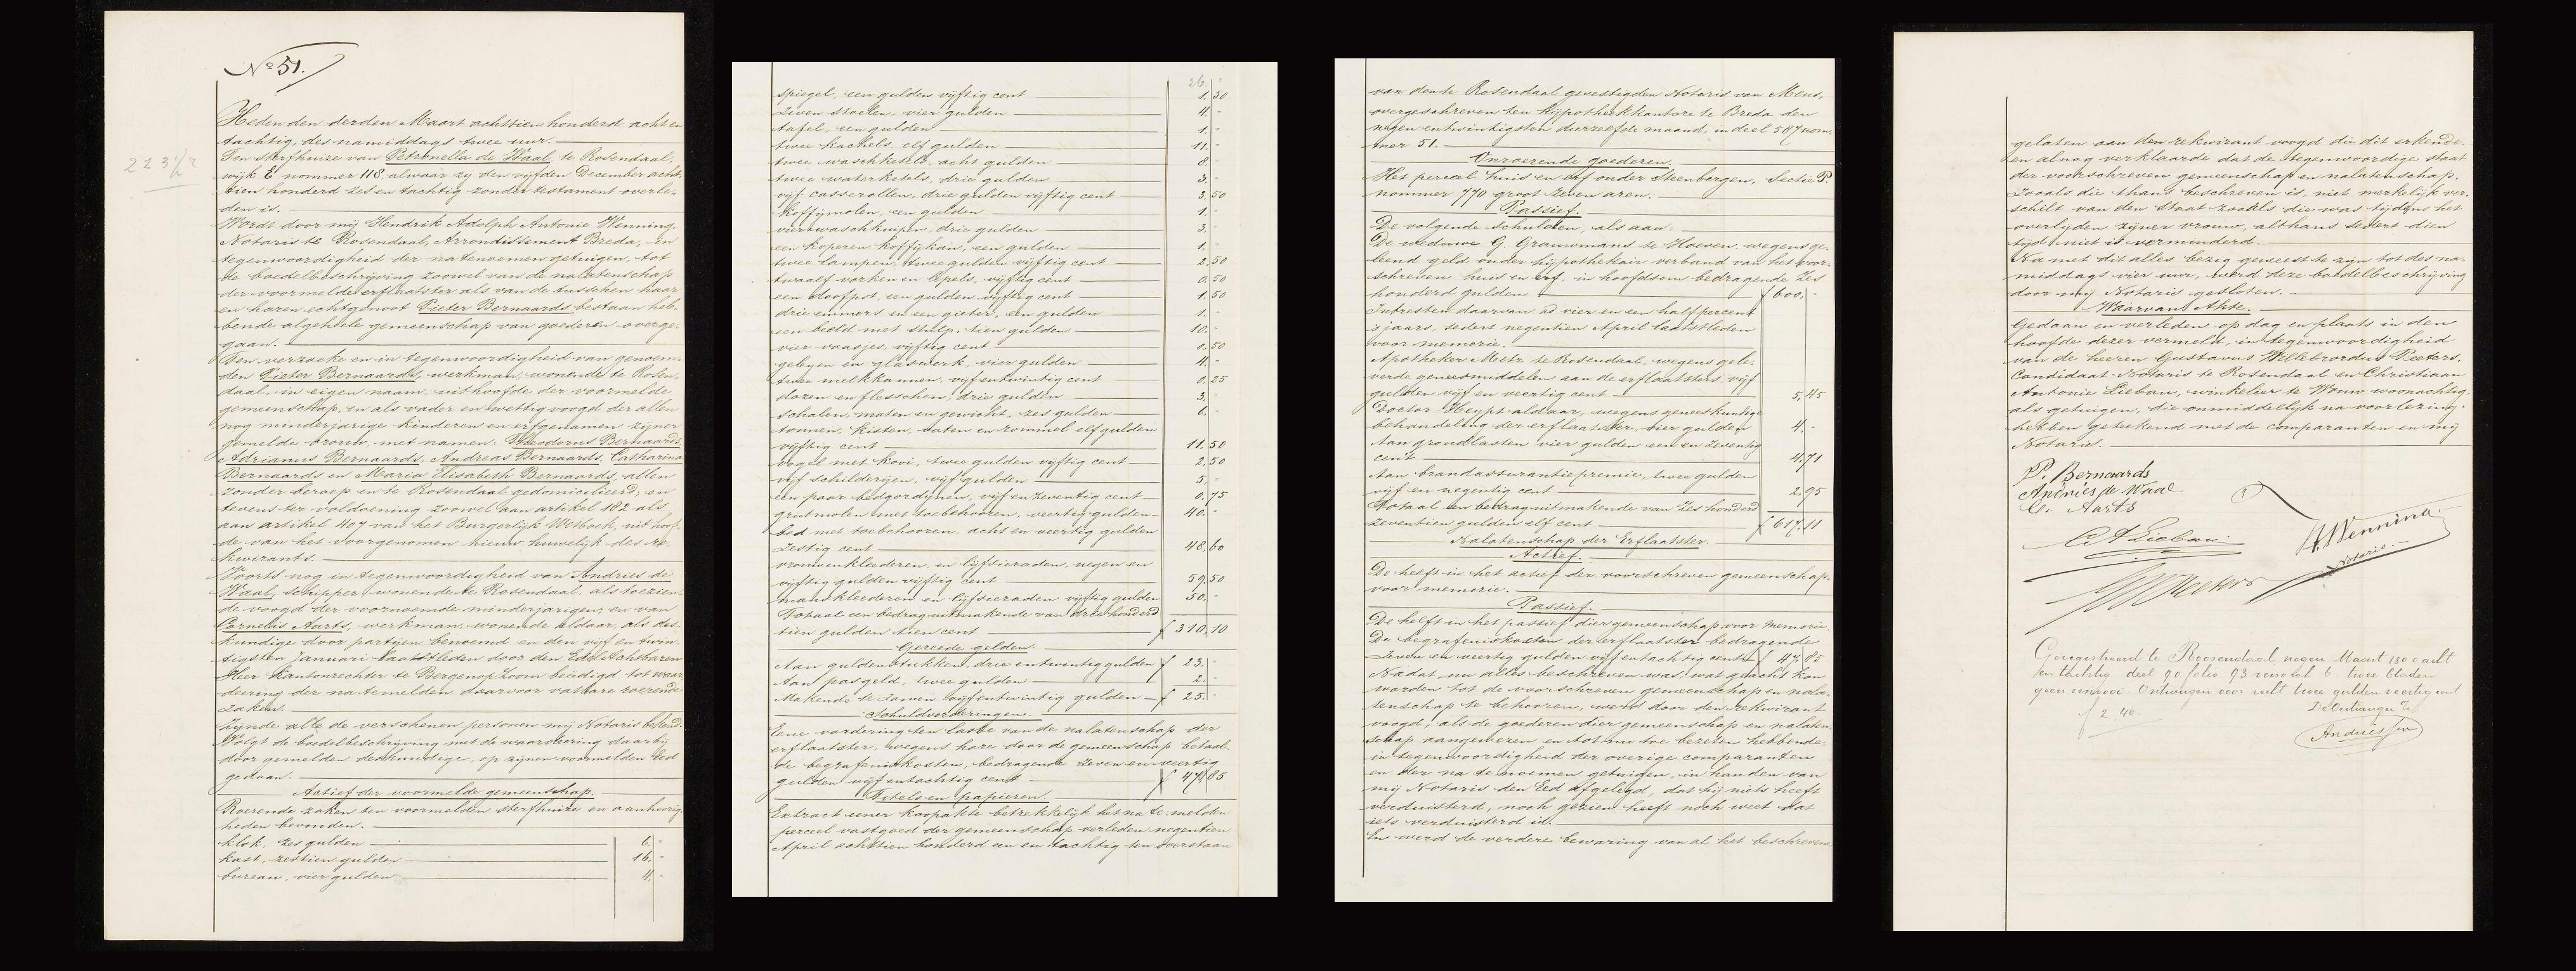 No 51.
223 1/2
Heden den derden Maart achttien honderd acht en
tachtig, des namiddags twee uur.
Ten sterfhuize van Petronella de Waal te Rosendaal,
wijk E nommer 118, alwaar zij den vijfden December acht-
tien honderd zes en tachtig zonder testament overle-
den is.
Wordt door mij Hendrik Adolph Antonie Wenning,
Notaris te Rosendaal, Arrondissement Breda, in
tegenwoordigheid der natenoemen getuigen, tot
de boedelbeschrijving zoowel van de nalatenschap
der voormelde erflaatster als van de tusschen haar
en haren echtgenoot Pieter Bernaards bestaan heb-
bende algeheele gemeenschap van goederen overge-
gaan.
Ten verzoeke en in tegenwoordigheid van genoem-
den Pieter Bernaards, werkman, wonende te Rosen-
daal, in eigen naam, uit hoofde der voormelde
gemeenschap, en als vader en wettig voogd der allen
nog minderjarige kinderen en erfgenamen zijner
gemelde vrouw, met namen: Theodorus Bernaards,
Adrianus Bernaards, Andreas Bernaards, Catharina
Bernaards en Maria Elisabeth Bernaards, allen
zonder beroep en te Rosendaal gedomicilieerd; en
tevens ter voldoening zoowel aan artikel 182 als
aan artikel 407 van het Burgerlijk Wetboek, uit hoof-
de van het voorgenomen nieuw huwelijk des re-
kwirants.
Voorts nog in tegenwoordigheid van Andries de
Waal, schipper, wonende te Rosendaal, als toezien-
de voogd der voornoemde minderjarigen; en van
Cornelis Aarts, werkman, wonende aldaar, als des-
kundige door partijen benoemd en den vijf en twin-
tigsten Januari laatstleden door den Edel Achtbaren
Heer Kantonrechter te Bergen op Zoom beëedigd tot waar-
deering der na temelden daarvoor vatbare roerende
zaken.
Zijnde alle de verschenen personen mij Notaris bekend.
Volgt de boedelbeschrijving met de waardeering daarbij
door gemelden deskundige, op zijnen voormelden Eed
gedaan.
Actief der voormelde gemeenschap.
Roerende zaken ten voormelden sterfhuize en aanhoorig-
heden bevonden.
klok, zes gulden 6. -
kast, zestien gulden 16. -
bureau, vier gulden 4. -
26. -
spiegel, een gulden vijftig cent 1.50
zeven stoelen, vier gulden 4. -
tafel, een gulden 1. -
twee kachels, elf gulden 11. -
twee waschketels, acht gulden 8. -
twee waterketels, drie gulden 3. -
vijf casserollen, drie gulden vijftig cent 3.50
koffijmolen, een gulden 1. -
vier waschkuipen, drie gulden 3. -
een koperen koffijkan, een gulden 1. -
twee lampen, twee gulden vijftig cent 2.50
twaalf vorken en lepels, vijftig cent 0.50
een doofpot, een gulden vijftig cent 1.50
drie emmers en een gieter, een gulden 1. -
een beeld met stulp, tien gulden 10. -
vier vaasjes, vijftig cent 0.50
geleyen en glaswerk, vier gulden 4 -
twee melkkannen, vijf en twintig cent 0.25
dozen en flesschen, drie gulden 3. -
schalen, maten en gewicht, zes gulden 6. -
tonnen, kisten, vaten en rommel elf gulden
vijftig cent 11.50
vogel met kooi, twee gulden vijftig cent 2.50
vijf schilderijen, vijf gulden 5. -
een paar bedgordijnen, vijf en zeventig cent 0.75
grutmolen met toebehooren, veertig gulden 40. -
bed met toebehooren, acht en veertig gulden
zestig cent 48.60
vrouwenkleederen en lijfsieraden, negen en
vijftig gulden vijftig cent 59.50
manskleederen en lijfsieraden vijftig gulden 50. -
Totaal een bedrag uitmakende van driehonderd
tien gulden tien cent f 310.10
Gereede gelden.
Aan guldenstukken, drie en twintig gulden f 23. -
Aan pasgeld, twee gulden 2. -
Makende te zamen vijf en twintig gulden f 25. -
Schuldvorderingen.
Eene vordering ten laste van de nalatenschap der
erflaatster, wegens hare door de gemeenschap betaal-
de begrafeniskosten, bedragende zeven en veertig
gulden vijf en tachtig cent f 47.85
Titels en papieren.
Extract eener koopakte betrekkelijk het na te melden
perceel vastgoed der gemeenschap verleden negentien
April achttien honderd een en tachtig ten overstaan
van den te Rosendaal gevestigden Notaris van Mens,
overgeschreven ten Hypotheekkantore te Breda den
negen en twintigsten dierzelfde maand, in deel 587 nom-
mer 51.
Onroerende goederen.
Het perceel huis en erf onder Steenbergen, Sectie P.
nommer 770 groot zeven aren.
Passief.
De volgende schulden, als aan:
De weduwe G. Grauwmans te Hoeven, wegens ge-
leend geld onder hypothekair verband van het voor-
schreven huis en erf, in hoofdsom bedragende zes
honderd gulden f 600. -
Intresten daarvan ad vier en een half percent
's jaars, sedert negentien April laatstleden
voor memorie.
Apotheker Metz te Rosendaal, wegens gele-
verde geneesmiddelen aan de erflaatster, vijf
gulden vijf en veertig cent 5.45
Doctor Heypt aldaar, wegens geneeskundige
behandeling der erflaatster, vier gulden 4. -
Aan grondlasten vier gulden een en zeventig
cent 4.71
Aan brandassurantiepremie, twee gulden
vijf en negentig cent 2.95
Totaal een bedrag uitmakende van zes honderd
zeventien gulden elf cent f 617.11
Nalatenschap der Erflaatster.
Actief.
De helft in het actief der voorschreven gemeenschap,
voor memorie.
Passief.
De helft in het passief dier gemeenschap, voor memorie.
De begrafeniskosten der erflaatster bedragende
zeven en veertig gulden vijf en tachtig cent f 47.85
Nadat nu alles beschreven was, wat geacht kon
worden tot de voorschreven gemeenschap en nala-
tenschap te behooren, werd door den rekwirant
voogd, als de goederen dier gemeenschap en nalaten-
schap aangewezen en tot nu toe bezeten hebbende,
in tegenwoordigheid der overige comparanten
en der na te noemen getuigen, in handen van
mij Notaris den Eed afgelegd, dat hij niets heeft
verduisterd, noch gezien heeft noch weet dat
iets verduisterd is.
En werd de verdere bewaring van al het beschrevene
gelaten aan den rekwirant voogd die dit erkende,
en alnog verklaarde dat de tegenwoordige staat
der voorschreven gemeenschap en nalatenschap,
zooals die thans beschreven is, niet merkelijk ver-
schilt van den staat zooals die was tijdens het
overlijden zijner vrouw, althans sedert dien
tijd niet is verminderd.
Na met dit alles bezig geweest te zijn tot des na-
middags vier uur, werd deze boedelbeschrijving
door mij Notaris gesloten.
Waarvan Akte.
Gedaan en verleden op dag en plaats in den
hoofde dezer vermeld, in tegenwoordigheid
van de heeren Gustavus Willebrordus Peeters,
Candidaat-Notaris te Rosendaal en Christiaan
Antonie Lieban, winkelier te Wouw woonachtig,
als getuigen, die onmiddelijk na voorlezing
hebben geteekend met de comparanten en mij
Notaris.
P. Bernaards
Andries de Waal
Cs. Aarts
C A Lieban
HWenning
Notaris.
GWPeeters
Geregistreerd te Roosendaal, negen Maart 1800 acht
en tachtig, deel 90 folio 93 verso vak 6 twee bladen
geen renvooi. Ontvangen voor recht twee gulden veertig cent
f 2,40.
De Ontvanger